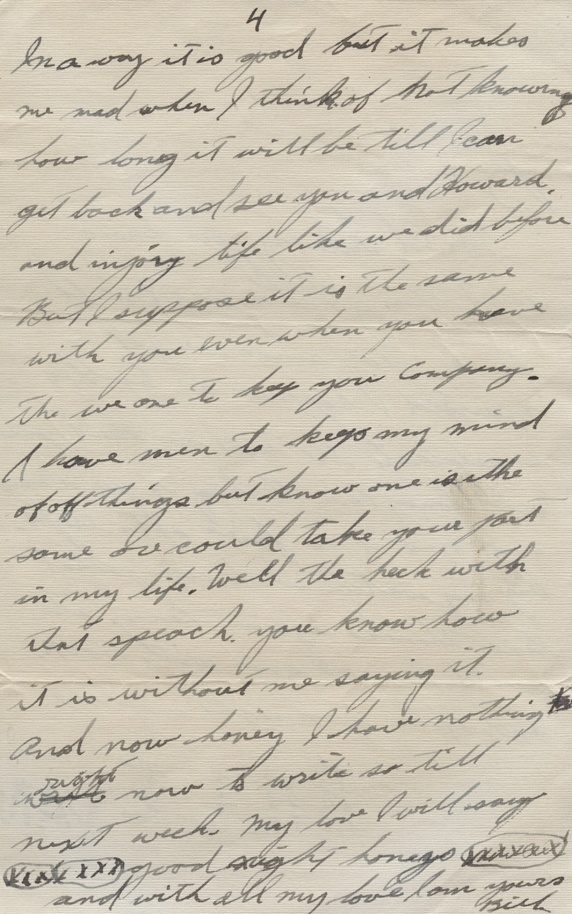 4
In a way it is good but it makes
me mad when I think of not knowing
how long it will be till I can
get back and see you and Howard.
and injory life like we did before
But I suppose it is the same
with you even when you have
the we one to kep you Company.
I have men to keep my mind
of off things but know one is the
same or could take your part
in my life. Well the heck with
that speach. you know how
it is without me saying it.
And now honey I have nothing
right now to write so till
next week. My love I will say
xxxxxxx good night honeys xxxxxxx
and with all my love I am yours
Bill